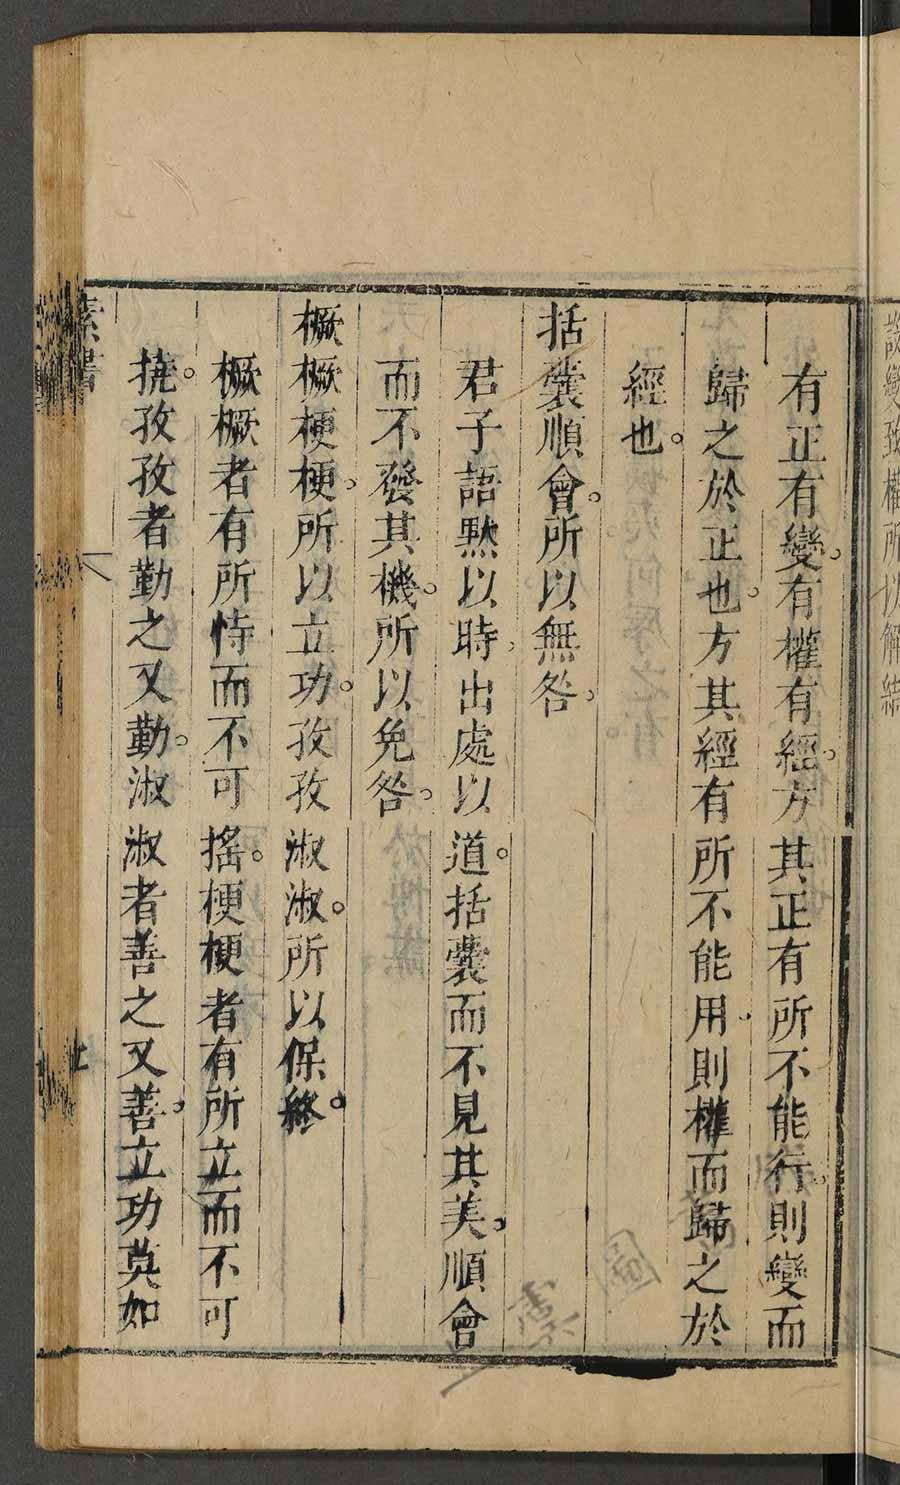 設變致權所以解結
有正有變。有權有經。方其正有所不能行。則變而
歸之於正也。方其經有所不能用。則權而歸之於
經也。
括囊順會。所以無咎。
君子語默以時。出處以道。括囊而不見其美。順會
而不發其機。所以免咎。
橛橛梗梗。所以立功。孜孜淑淑。所以保終。
橛橛者有所恃而不可搖。梗梗者有所立而不可
撓。孜孜者勤之又勤。淑淑者善之又善。立功莫如
素書